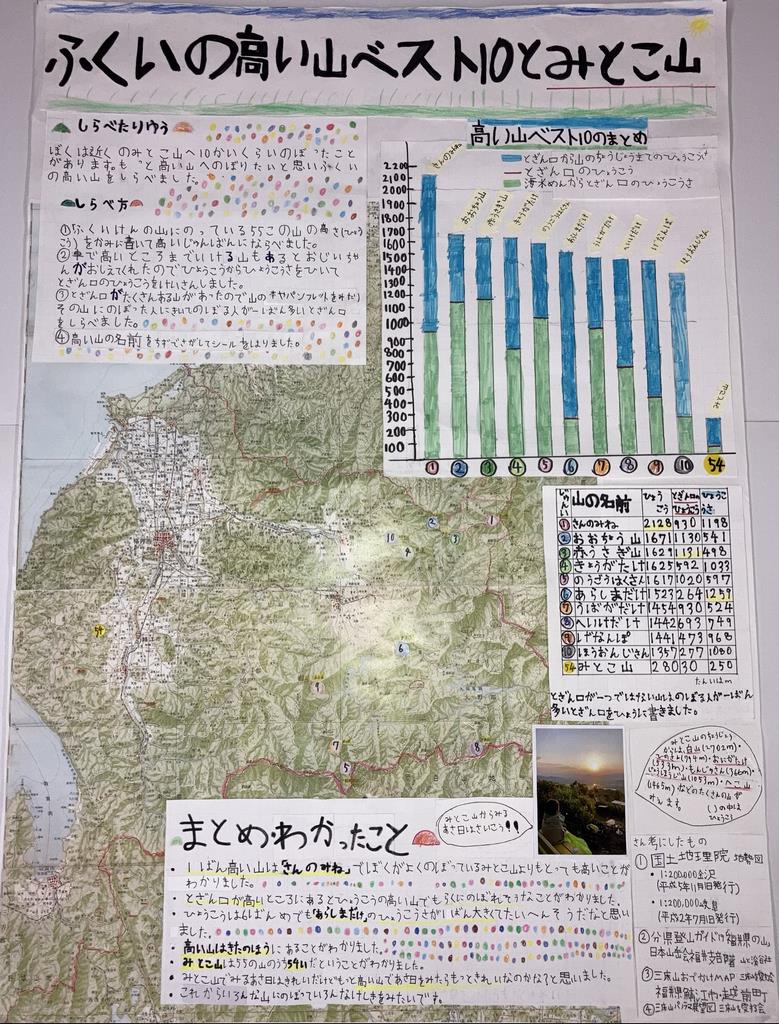 ふくいの高い山ベスト10とみとこ山
しらべたりゆう
ぼくは近くのみとこ山へ10かいくらいのぼったこと
があります。もっと高い山へのぼりたいと思いふくい
の高い山をしらべました。
しらべ方
①ふくいけんの山にのっている55この山の高さ(ひょう
こう)をかみに書いて高いじゅんばんにならべました。
②車で高いところまでいける山もあるとおじいちゃん
がおしえてくれたのでひょうこうからひょうこうさをひいて
とざん口のひょうこうをけいさんしました。
③とざん口がたくさんある山があったので山の本やパンフレットをみたり
その山にのぼった人にきいてのぼる人が一ばん多いとざん口
をしらべました。
④高い山の名前をちずでさがしてシールをはりました。
高い山ベスト10のまとめ
とざん口から山のちょうじょうまでのひょうこうさ
とざん口のひょうこう
海水めんからとざん口のひょうこうさ
2200
2100
2000
1900
1800
1700
1600
1500
1400
1300
1200
1100
1000
900
800
700
600
500
400
300
200
100
さんのみね
おおちょう山
赤うさぎ山
きょうがたけ
のうごうはくさん
あらしまだけ
うばがだけ
へいけだけ
げなんぽ
ほうおんじさん
みとこ山
① ② ③ ④ ⑤ ⑥ ⑦ ⑧ ⑨ ⑩ 54
じゅんい 山の名前 ひょうこう とざん口のひょうこう ひょうこうさ
① さんのみね 2128 930 1198
② おおちょう山 1671 1130 541
③ 赤うさぎ山 1629 1131 498
④ きょうがたけ 1625 592 1033
⑤ のうごうはくさん 1617 1020 597
⑥ あらしまだけ 1523 264 1259
⑦ うばがだけ 1454 930 524
⑧ へいけだけ 1442 693 749
⑨ げなんぽ 1441 473 968
⑩ ほうおんじさん 1357 277 1080
54 みとこ山 280 30 250
たんいはm
とざん口が一つではない山はのぼる人が一ばん
多いとざん口をひょうに書きました。
みとこ山のちょうじょう
からは、白山(2702m)・
などのたくさんの山が
みえます。
( )の中は
ひょうこう
みとこ山からみる
あさ日はさいこう!!
まとめ・わかったこと
・1ばん高い山は「さんのみね」でぼくがよくのぼっているみとこ山よりもとっても高いことが
わかりました。
・とざん口が高いところにあるとひょうこうの高い山でもらくにのぼれそうなことがわかりました。
・ひょうこうは6ばんめでも「あらしまだけ」のひょうこうさが1ばん大きくてたいへんそうだなと思い
ました。
・高い山はきたのほうにあることがわかりました。
・みとこ山は55の山のうち54いだということがわかりました。
・みとこ山でみるあさ日もきれいだけどもっと高い山であさ日をみたらもっときれいなのかな?と思いました。
・これからいろんな山にのぼっていろんなけしきをみたいです。
さん考にしたもの
①国土地理院 地勢図
・1:200,000金沢
(平成5年11月1日発行)
・1:200,000岐阜
(平成2年7月1日発行)
②分県登山ガイド17福井県の山
日本山岳会福井支部 山と渓谷社
③三床山おでかけMAP
福井県鯖江市・越前町
④三床山パノラマ展望図